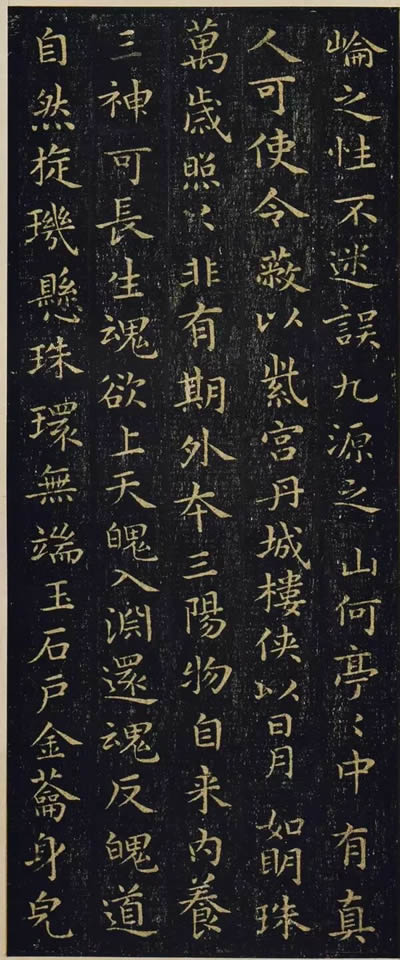 崘之性不迷誤九源之山何亭〻中有真
人可使令蔽以紫宮丹城樓俠以日月如明珠
萬歲照〻非有期外本三陽物自来內養
三神可長生魂欲上天魄入淵還魂反魄道
自然旋璣懸珠環無端玉石戶金蘥身皃